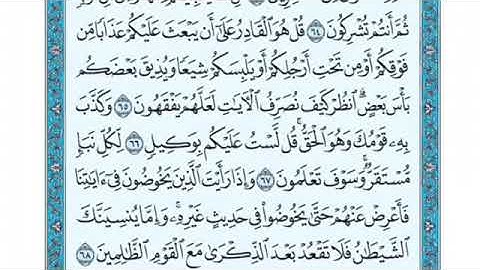 ثُمَّ أَنتُمْ تُشْرِكُونَ ٦٤ قُلْ هُوَ الْقَادِرُ عَلَىٰ أَن يَبْعَثَ عَلَيْكُمْ عَذَابًا مِّن
فَوْقِكُمْ أَوْ مِن تَحْتِ أَرْجُلِكُمْ أَوْ يَلْبِسَكُمْ شِيَعًا وَيُذِيقَ بَعْضَكُم
بَأْسَ بَعْضٍ ۗ انظُرْ كَيْفَ نُصَرِّفُ الْآيَاتِ لَعَلَّهُمْ يَفْقَهُونَ ٦٥ وَكَذَّبَ
بِهِ قَوْمُكَ وَهُوَ الْحَقُّ ۚ قُل لَّسْتُ عَلَيْكُم بِوَكِيلٍ ٦٦ لِّكُلِّ نَبَإٍ
مُّسْتَقَرٌّ ۚ وَسَوْفَ تَعْلَمُونَ ٦٧ وَإِذَا رَأَيْتَ الَّذِينَ يَخُوضُونَ فِي آيَاتِنَا
فَأَعْرِضْ عَنْهُمْ حَتَّىٰ يَخُوضُوا فِي حَدِيثٍ غَيْرِهِ ۚ وَإِمَّا يُنسِيَنَّكَ
الشَّيْطَانُ فَلَا تَقْعُدْ بَعْدَ الذِّكْرَىٰ مَعَ الْقَوْمِ الظَّالِمِينَ ٦٨